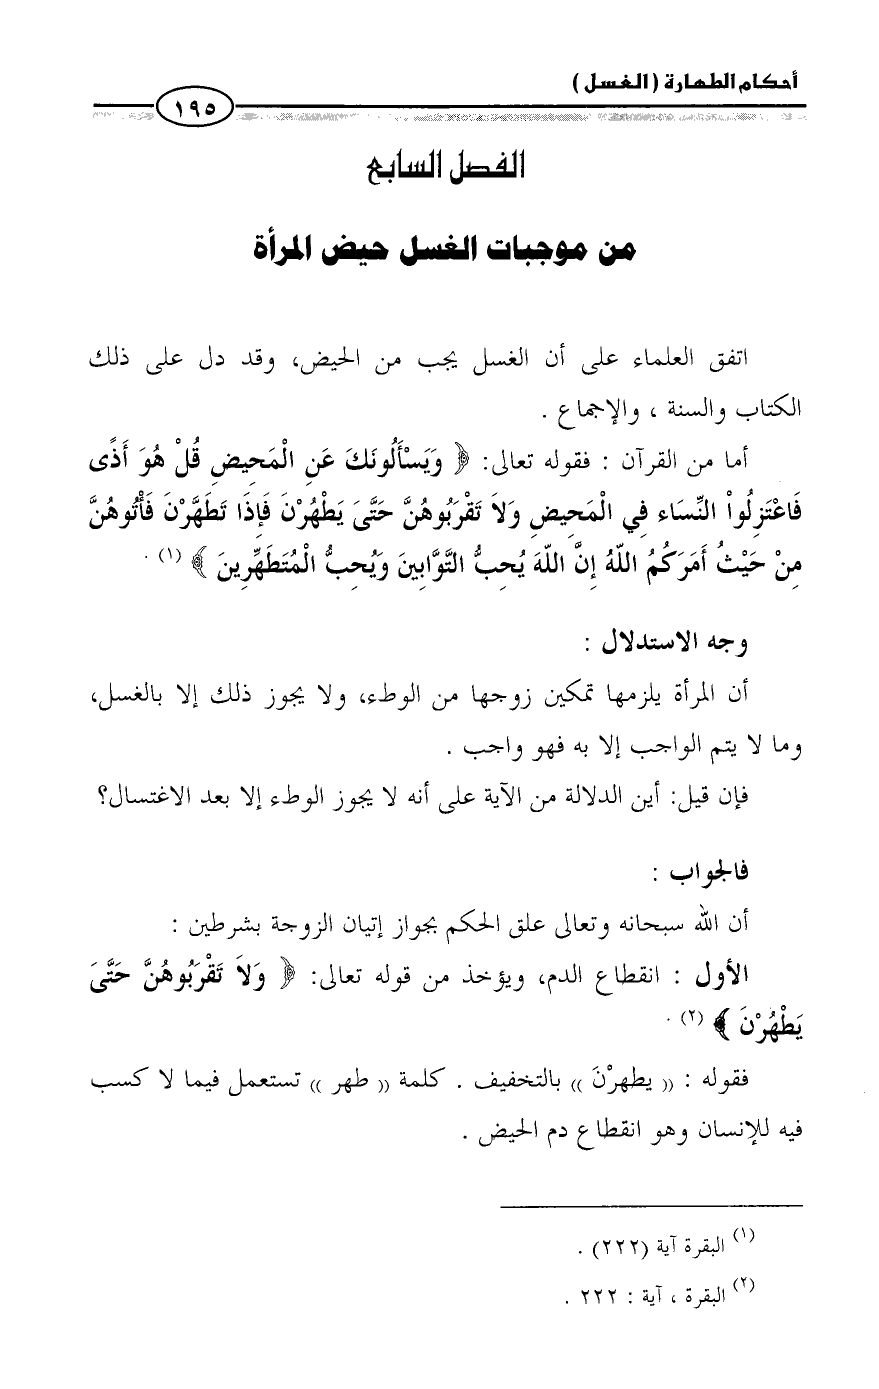 أحكام الطهارة ( الغسل )
١٩٥
الفصل السابع
من موجبات الغسل حيض المرأة
اتفق العلماء على أن الغسل يجب من الحيض، وقد دل على ذلك
الكتاب والسنة ، والإجماع .
أما من القرآن : فقوله تعالى: ﴿ وَيَسْأَلُونَكَ عَنِ الْمَحِيضِ قُلْ هُوَ أَذًى
فَاعْتَزِلُواْ النِّسَاء فِي الْمَحِيضِ وَلاَ تَقْرَبُوهُنَّ حَتَّىَ يَطْهُرْنَ فَإِذَا تَطَهَّرْنَ فَأْتُوهُنَّ
مِنْ حَيْثُ أَمَرَكُمُ اللّهُ إِنَّ اللّهَ يُحِبُّ التَّوَّابِينَ وَيُحِبُّ الْمُتَطَهِّرِينَ ﴾ (١) .
وجه الاستدلال :
أن المرأة يلزمها تمكين زوجها من الوطء، ولا يجوز ذلك إلا بالغسل،
وما لا يتم الواجب إلا به فهو واجب .
فإن قيل: أين الدلالة من الآية على أنه لا يجوز الوطء إلا بعد الاغتسال؟
فالجواب :
أن الله سبحانه وتعالى علق الحكم بجواز إتيان الزوجة بشرطين :
الأول : انقطاع الدم، ويؤخذ من قوله تعالى: ﴿ وَلاَ تَقْرَبُوهُنَّ حَتَّىَ
يَطْهُرْنَ ﴾ (٢) .
فقوله : (( يطهرْنَ )) بالتخفيف . كلمة (( طهر )) تستعمل فيما لا كسب
فيه للإنسان وهو انقطاع دم الحيض .
(١) البقرة آية (٢٢٢) .
(٢) البقرة ، آية : ٢٢٢ .